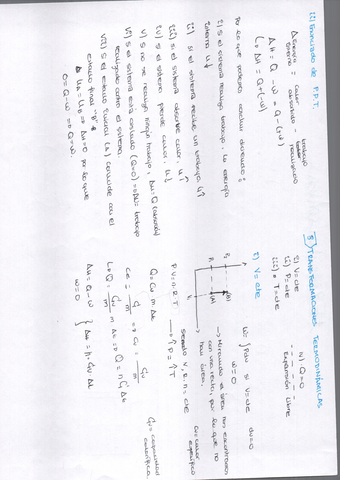 ii) Enunciado de P.P.T.
Δ Energía interna = calor absorbido - trabajo realizado
ΔU = Q - W = Q - (+W)
↳ ΔU = Q + (-W)
Por lo que podemos concluir diciendo:
i) Si el sistema realiza trabajo, la energía interna U↓
ii) Si el sistema recibe un trabajo, U↑
iii) Si el sistema absorbe calor, U↑
iv) Si el sistema pierde calor, U↓
v) Si no se realiza ningún trabajo, ΔU=Q (absorbido)
vi) Si el sistema está aislado (Q=0) => ΔU= trabajo
realizado contra el sistema.
vii) Si el estado inicial (A) coincide con el
estado final "B" =>
UA = UB => ΔU=0 por lo que
0 = Q - W => Q = W.
3) TRANSFORMACIONES TERMODINÁMICAS
i) V=cte
ii) P=cte
iii) T=cte
iv) Q=0
Expansión libre
i) V=cte
W= ∫PdV si V=cte dV=0
W=0
-> Mirando el área nos encontramos
con una recta, por lo que no
hay área.
P.V=n.R.T -> ↑P = ↑T
siendo V, R, n = cte
Q = Ce m Δt
Ce = calor específico
Ce = Cv/m => Cv
Cv = capacidad calorífica
↳ Q = Cv/m m Δt => Q = n Cv Δt
ΔU = Q - W
W = 0
} ΔU = n · Cv · Δt